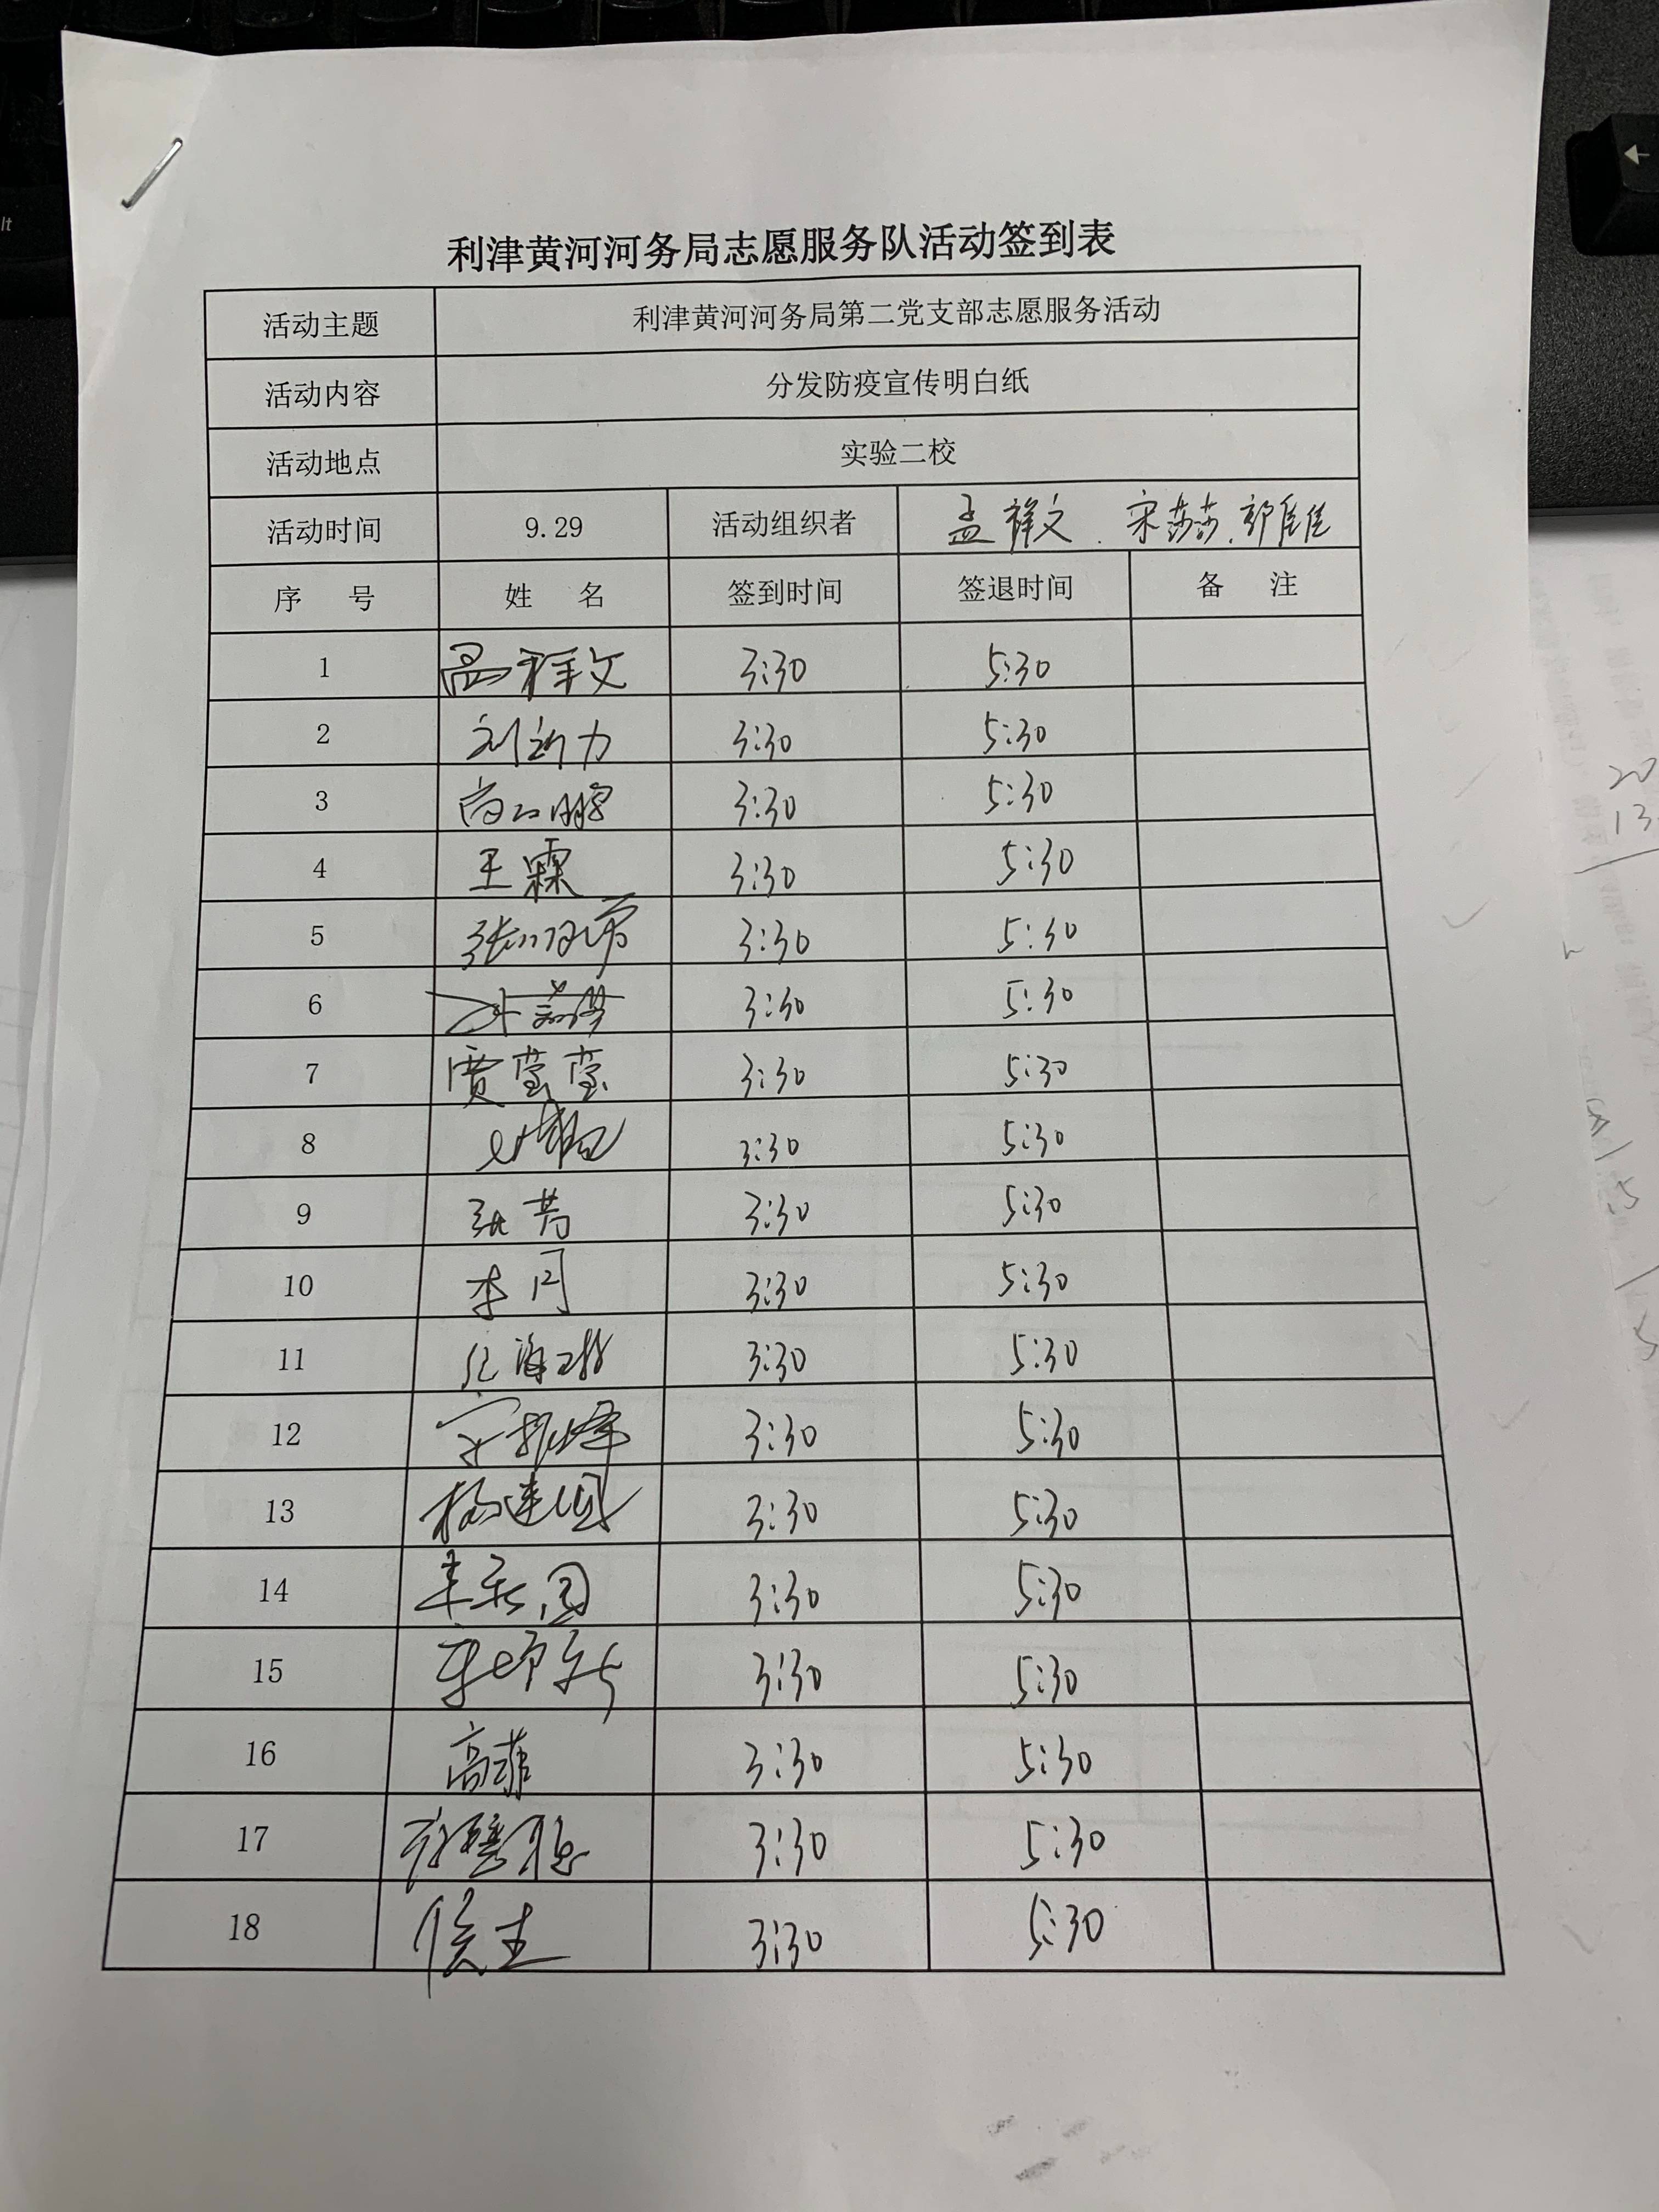 利津黄河河务局志愿服务队活动签到表
活动主题 利津黄河河务局第二党支部志愿服务活动
活动内容 分发防疫宣传明白纸
活动地点 实验二校
活动时间 9.29 活动组织者 孟祥文、宋莎莎、郭佳佳
序 号 姓 名 签到时间 签退时间 备 注
1 孟祥文 3:30 5:30
2 3:30 5:30
3 3:30 5:30
4 王霖 3:30 5:30
5 3:30 5:30
6 3:30 5:30
7 贾莹莹 3:30 5:30
8 3:30 5:30
9 张芳 3:30 5:30
10 李月 3:30 5:30
11 3:30 5:30
12 3:30 5:30
13 杨建国 3:30 5:30
14 3:30 5:30
15 3:30 5:30
16 高菲 3:30 5:30
17 3:30 5:30
18 3:30 5:30